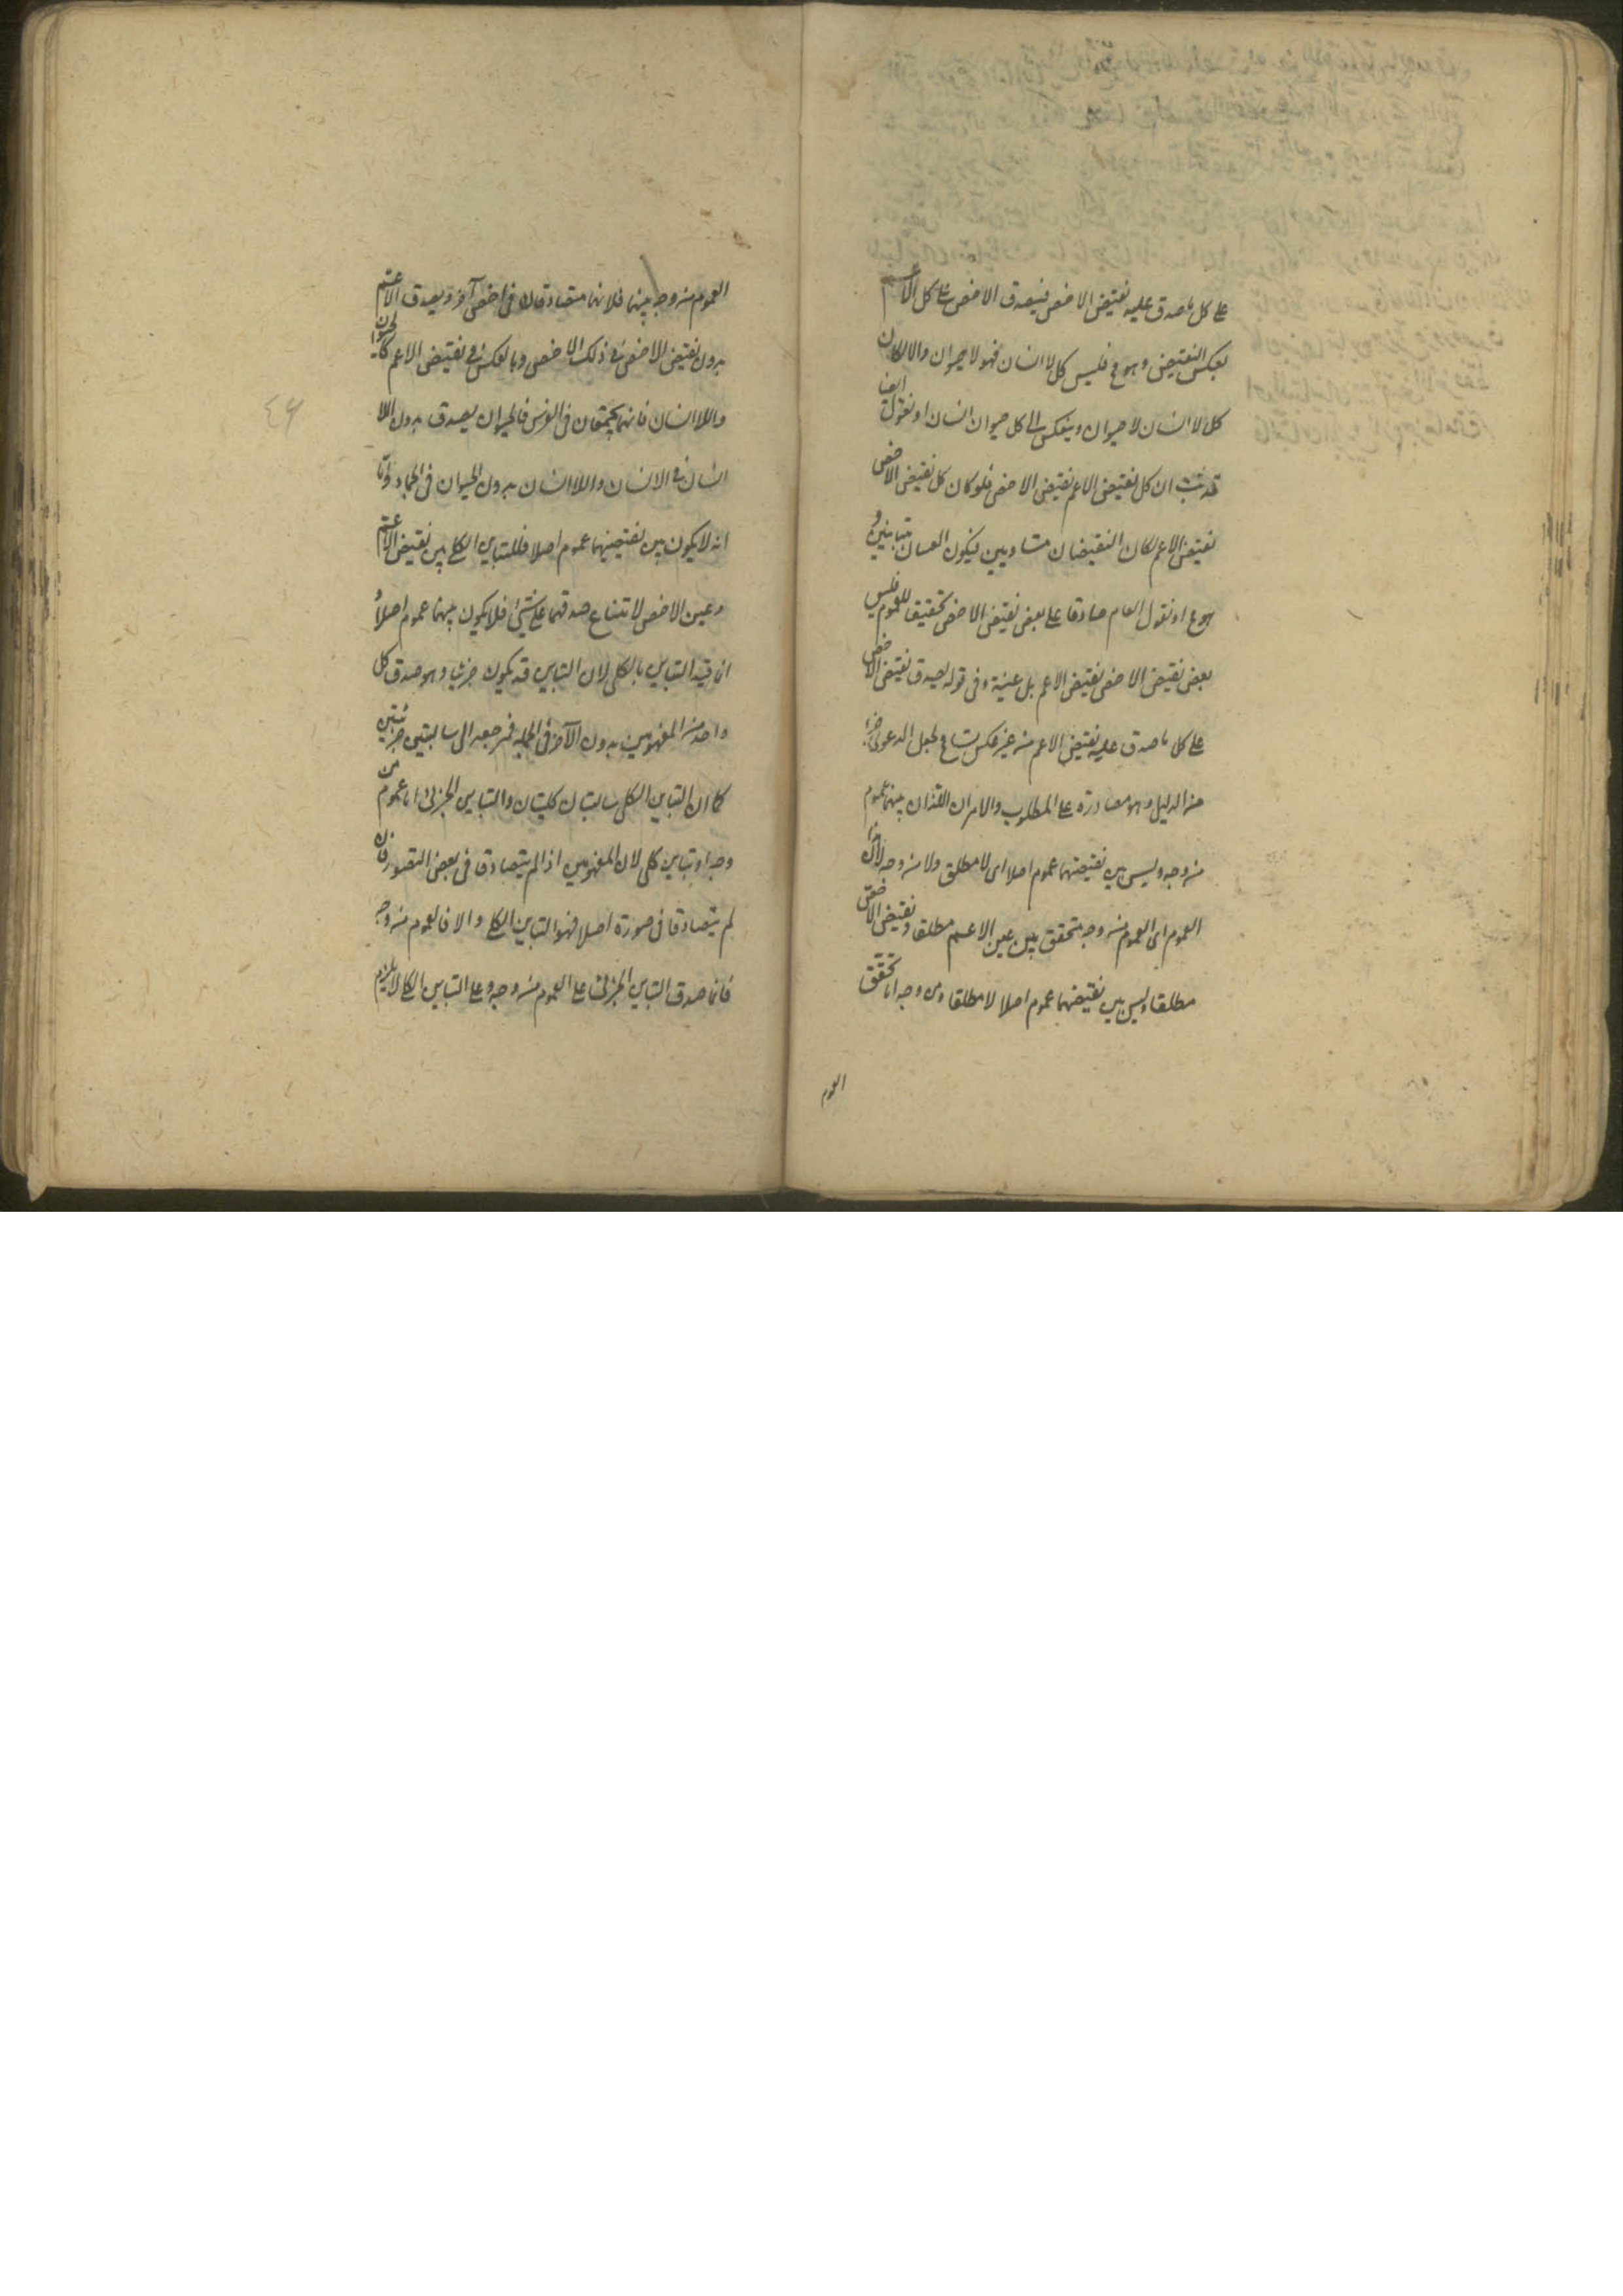 على كل ما صدق عليه نقيض الاخص فيصدق الاخص على كل الاعم
بعكس النقيض وهو مح فليس كل لا انسان فهو لا حيوان والا لكان
كل لا انسان لا حيوان وينعكس الى كل حيوان انسان او نقول ايضا
قد ثبت ان كل نقيض الاعم نقيض الاخص فلو كان كل نقيض الاخص
نقيض الاعم لكان النقيضان متساويين فيكون العينان متساويين و
هو مح او نقول العام صادقا على بعض نقيض الاخص تحقيقا للعموم فليس
بعض نقيض الاخص نقيض الاعم بل عينه وفى قوله يصدق نقيض الاخص
على كل ما صدق عليه نقيض الاعم من غير عكس تسامح لجعل الدعوى جزءا
من الدليل وهو مصادرة على المطلوب والامران اللذان بينهما عموم
من وجه وليس بين نقيضهما عموم اصلا اى لا مطلق ولا من وجه لان هذا
العموم اى العموم من وجه متحقق بين عين الاعم مطلقا ونقيض الاخص
مطلقا وليس بين نقيضهما عموم اصلا لا مطلقا ومن وجه اما تحقق
العموم
العموم من وجه بينهما فلانهما متصادقان فى اخص آخر ويصدق الاعم
بدون نقيض الاخص فى ذلك الاخص وبالعكس فى نقيض الاعم كالحيوان
واللاانسان فانهما يجتمعان فى الفرس فالحيوان يصدق بدون اللا
انسان فى الانسان واللاانسان بدون الحيوان فى الجماد واما
انه لا يكون بين نقيضيهما عموم اصلا فللتباين الكلى بين نقيض الاعم
وعين الاخص لامتناع صدقهما على شئ فلا يكون بينهما عموم اصلا و
انما قيد التباين بالكلى لان التباين قد يكون جزئيا وهو صدق كل
واحد من المفهومين بدون الآخر فى الجملة فمرجعه الى سالبتين جزئيتين
كما ان التباين الكلى سالبتان كليتان والتباين الجزئى اما عموم من
وجه او تباين كلى لان المفهومين اذا لم يتصادقا فى بعض الصور فان
لم يتصادقا فى صورة اصلا فهو التباين الكلى والا فالعموم من وجه
فلما صدق التباين الجزئى على العموم من وجه وعلى التباين الكلى لا يلزم
٤٦